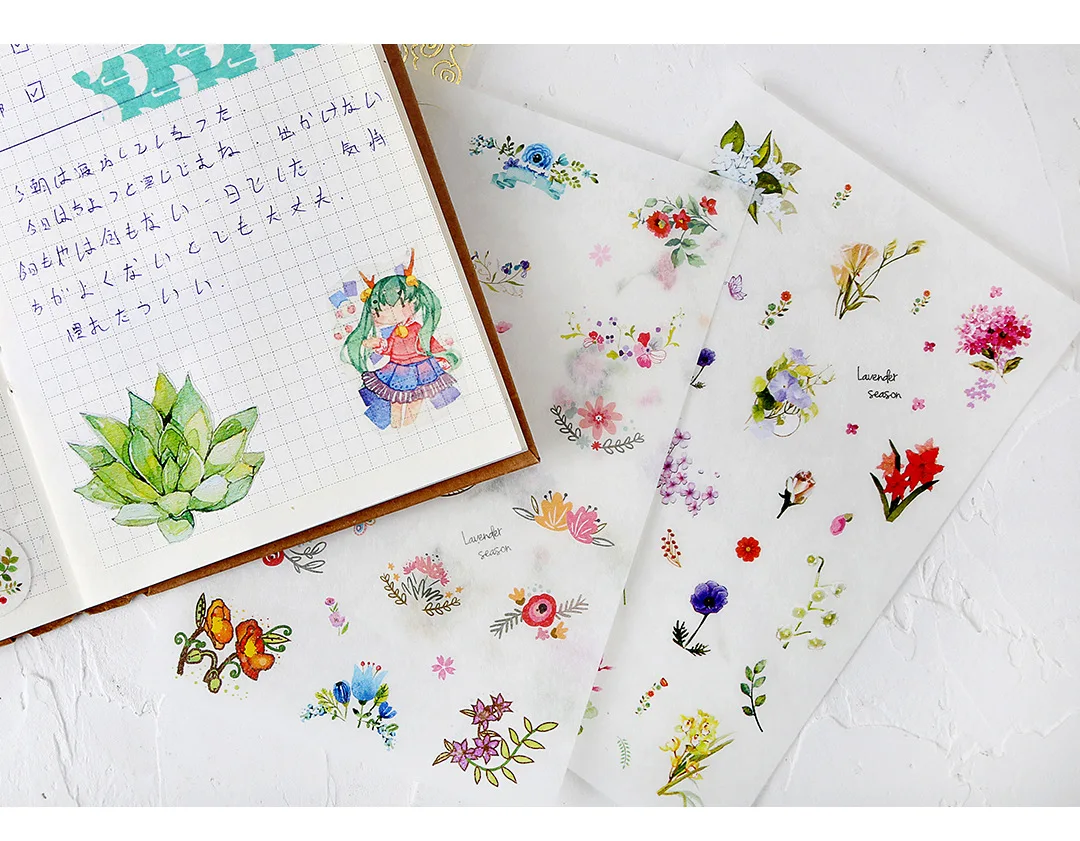 今朝は寝坊してしまった.
今日はちょっと寒じてまね. 出かけない
今日もやは何もない一日でした. 気持
ちがよくないとても大丈夫.
疲れたついい.
Lavender
season
Lavender
season